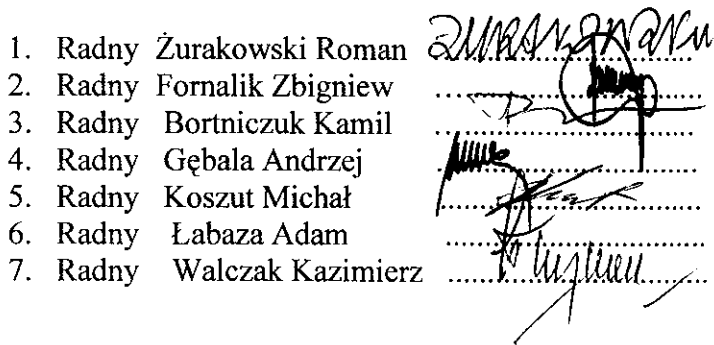 1. Radny Żurakowski Roman
2. Radny Fornalik Zbigniew
3. Radny Bortniczuk Kamil
4. Radny Gębala Andrzej
5. Radny Koszut Michał
6. Radny Łabaza Adam
7. Radny Walczak Kazimierz